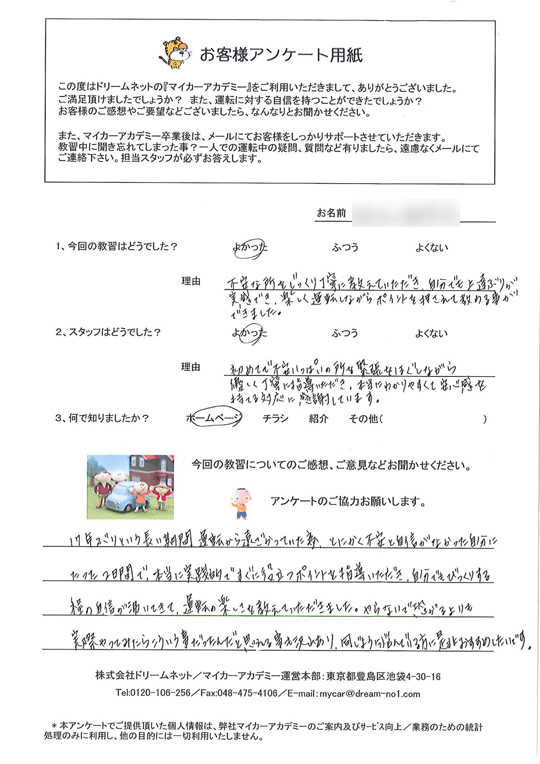 お客様アンケート用紙
この度はドリームネットの『マイカーアカデミー』をご利用いただきまして、ありがとうございました。
ご満足頂けましたでしょうか？ また、運転に対する自信を持つことができたでしょうか？
お客様のご感想やご要望などございましたら、なんなりとお聞かせください。
また、マイカーアカデミー卒業後は、メールにてお客様をしっかりサポートさせていただきます。
教習中に聞き忘れてしまった事？一人での運転中の疑問、質問など有りましたら、遠慮なくメールにて
ご連絡下さい。担当スタッフが必ずお答えします。
お名前
1、今回の教習はどうでした？ よかった ふつう よくない
理由 不安な所もじっくり丁寧に教えていただき、自分でも上達ぶりが
実感でき、楽しく運転しながらポイントを押さえて教わる事が
できました。
2、スタッフはどうでした？ よかった ふつう よくない
理由 初めてで不安いっぱいの所を緊張をほぐしながら
優しく丁寧に指導いただき、本当にわかりやすくて安心感を
持てる対応に感謝しています。
3、何で知りましたか？ ホームページ チラシ 紹介 その他( )
今回の教習についてのご感想、ご意見などお聞かせください。
アンケートのご協力お願いします。
17年ぶりという長い期間 運転から遠ざかっていた為、とにかく不安と自信がなかった自分に
たった2日間で、本当に実践的ですぐに役立つポイントを指導いただき、自分でもびっくりする
程の自信が湧いてきて、運転の楽しさを教えていただきました。やらないで怖がるよりも
実際やってみたらこういう事だったんだと思える事も沢山あり、同じように悩んでいる方に是非おすすめしたいです。
株式会社ドリームネット／マイカーアカデミー運営本部：東京都豊島区池袋4-30-16
Tel:0120-106-256／Fax:048-475-4106／E-mail:mycar@dream-no1.com
＊本アンケートでご提供頂いた個人情報は、弊社マイカーアカデミーのご案内及びサービス向上／業務のための統計
処理のみに利用し、他の目的には一切利用いたしません。